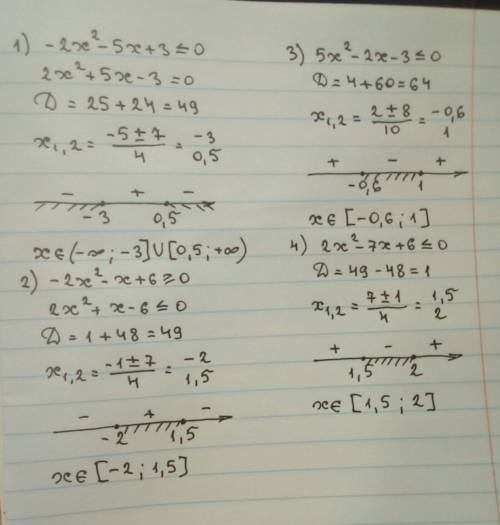 1) -2x² - 5x + 3 ≤ 0
2x² + 5x - 3 = 0
D = 25 + 24 = 49
x₁,₂ = (-5 ± 7)/4 = -3 0,5
- + -
-3 0,5
x ∈ (-∞; -3] ∪ [0,5; +∞)
2) -2x² - x + 6 ≥ 0
2x² + x - 6 ≤ 0
D = 1 + 48 = 49
x₁,₂ = (-1 ± 7)/4 = -2 1,5
- + -
-2 1,5
x ∈ [-2; 1,5]
3) 5x² - 2x - 3 ≤ 0
D = 4 + 60 = 64
x₁,₂ = (2 ± 8)/10 = -0,6 1
+ - +
-0,6 1
x ∈ [-0,6; 1]
4) 2x² - 7x + 6 ≤ 0
D = 49 - 48 = 1
x₁,₂ = (7 ± 1)/4 = 1,5 2
+ - +
1,5 2
x ∈ [1,5; 2]